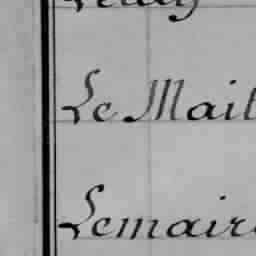 Le Mail
Lemaire